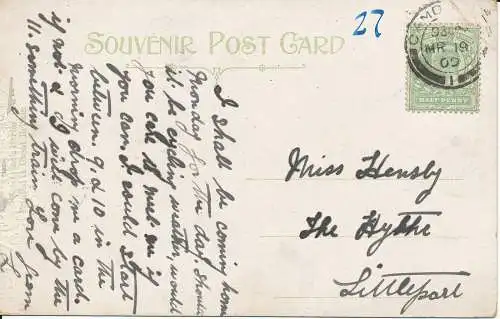 SOUVENIR POST CARD
27
MR 19
09
HALF PENNY
I shall be coming home
Monday for the day. Should
it be cycling weather, would
you care to meet me if
you can, I could start
between 9. & 10 in the
morning drop me a card.
if not I will come by the
11. something train. Love from
Miss Hensby
The Hythe
Littleport